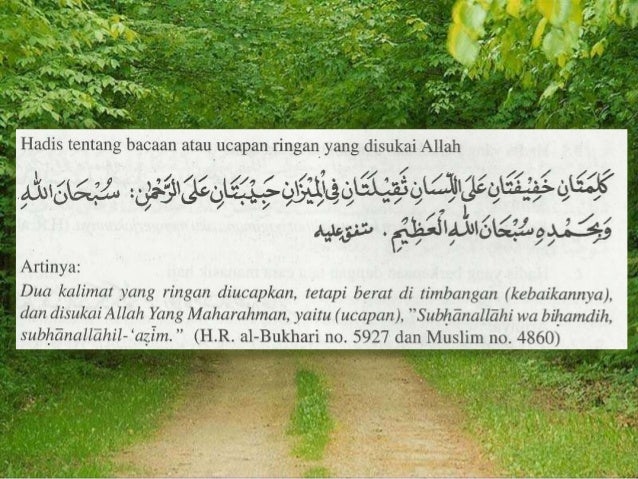 Hadis tentang bacaan atau ucapan ringan yang disukai Allah
كَلِمَتَانِ خَفِيْفَتَانِ عَلَى اللِّسَانِ ثَقِيْلَتَانِ فِى الْمِيْزَانِ حَبِيْبَتَانِ عَلَى الرَّحْمٰنِ: سُبْحَانَ اللّٰهِ
وَبِحَمْدِهِ سُبْحَانَ اللّٰهِ الْعَظِيْمِ. متفق عليه
Artinya:
Dua kalimat yang ringan diucapkan, tetapi berat di timbangan (kebaikannya),
dan disukai Allah Yang Maharahman, yaitu (ucapan), ”Subḥānallāhi wa biḥamdih,
subḥānallāhil-‘aẓīm.” (H.R. al-Bukhari no. 5927 dan Muslim no. 4860)